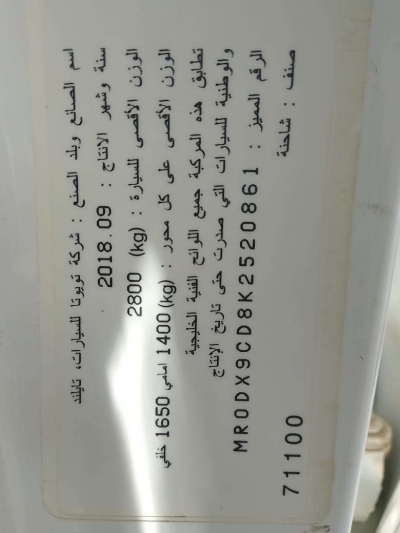 اسم الصانع وبلد الصنع : شركة تويوتا للسيارات، تايلند
سنة وشهر الانتاج : 2018.09
الوزن الأقصى للسيارة : (kg) 2800
الوزن الأقصى على كل محور : (kg) 1400 امامي 1650 خلفي
تطابق هذه المركبة جميع اللوائح الفنية الخليجية
والوطنية للسيارات التي صدرت حتى تاريخ الإنتاج
الرقم المميز : MR0DX9CD8K2520861
صنف : شاحنة
71100